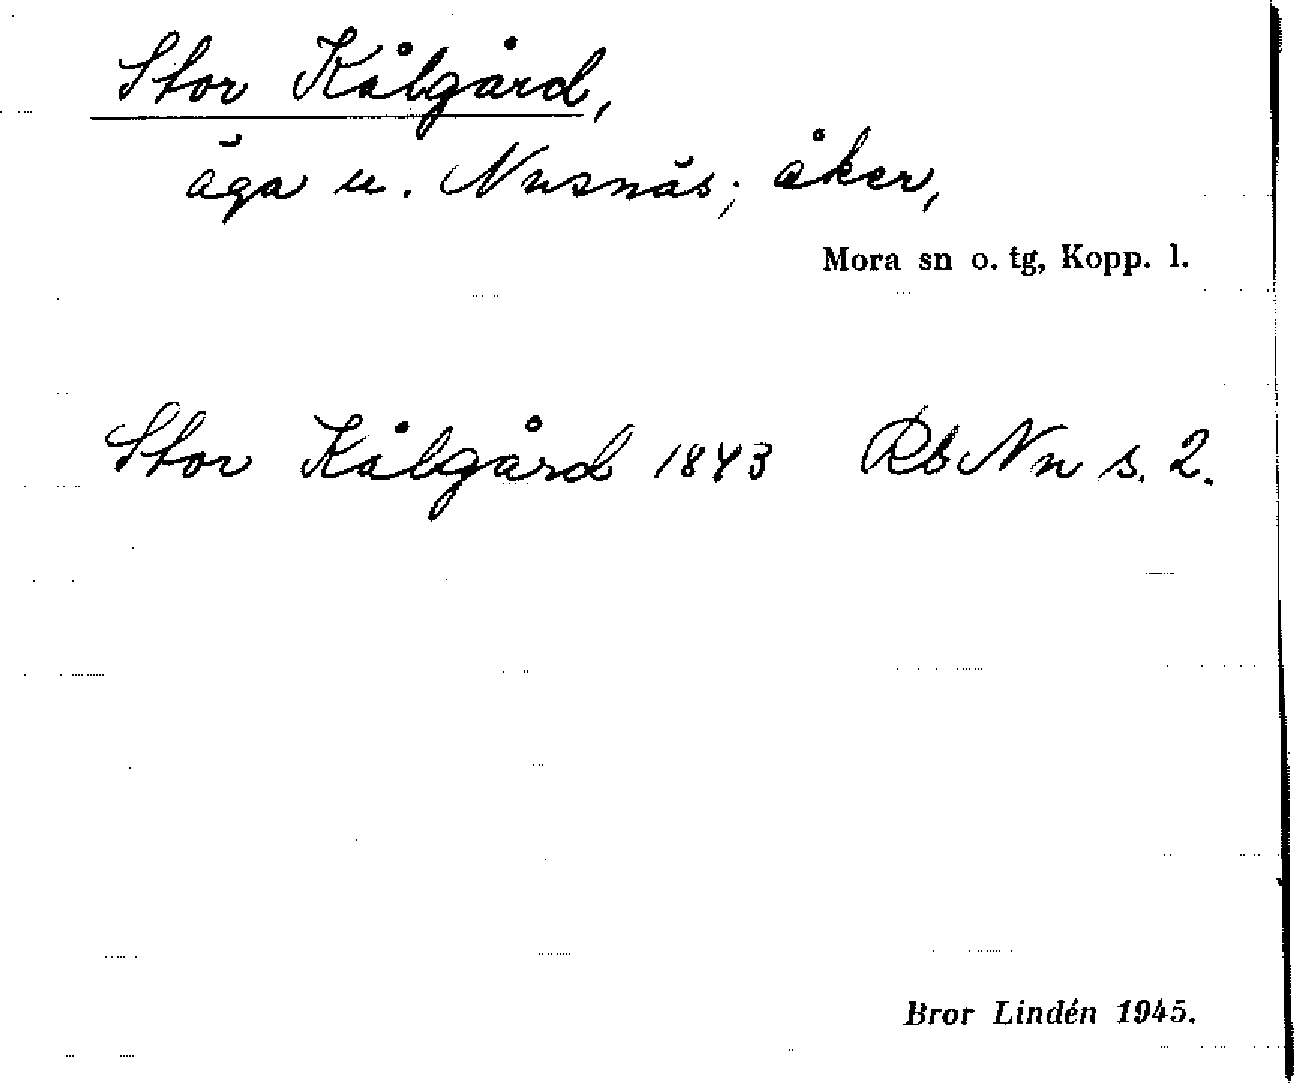 Stor Kålgård,
äga u. Nusnäs; åker,
Mora sn o. tg, Kopp. l.
Stor Kålgård 1843 Rb Nn s. 2.
Bror Lindén 1945.